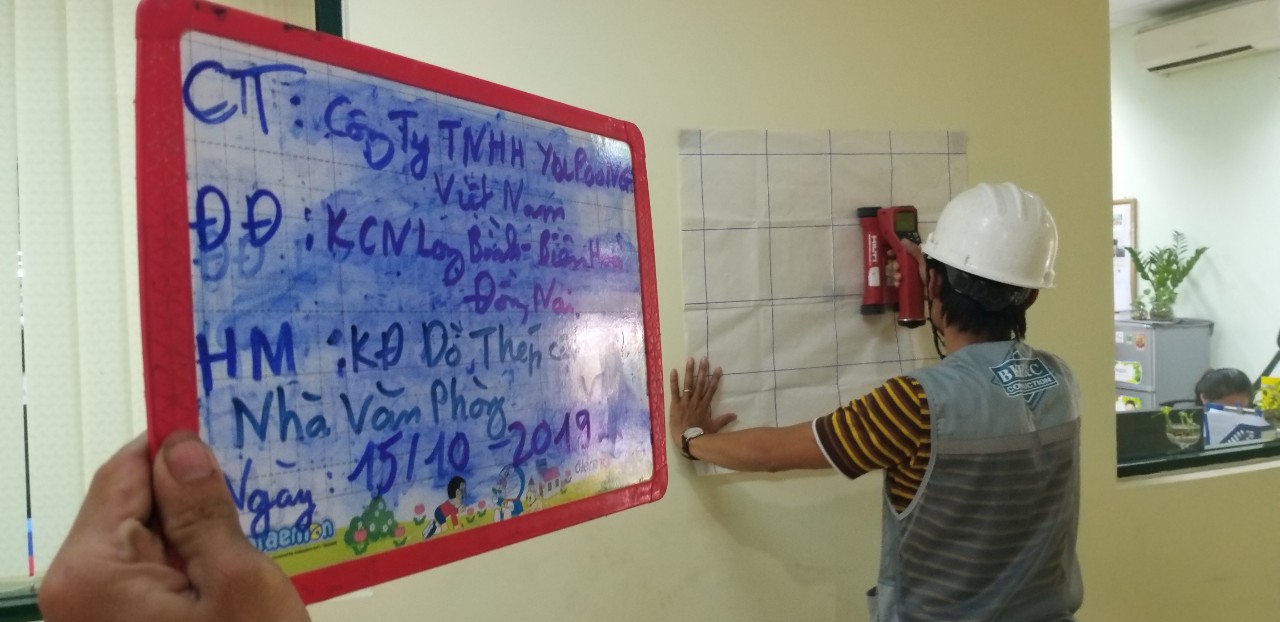 CTT: Công Ty TNHH YOUPOONG
Việt Nam
ĐĐ: KCN Long Bình - Biên Hoà
Đồng Nai
HM: KĐ Dò Thép
Nhà Văn Phòng
Ngày: 15/10-2019
HILTI